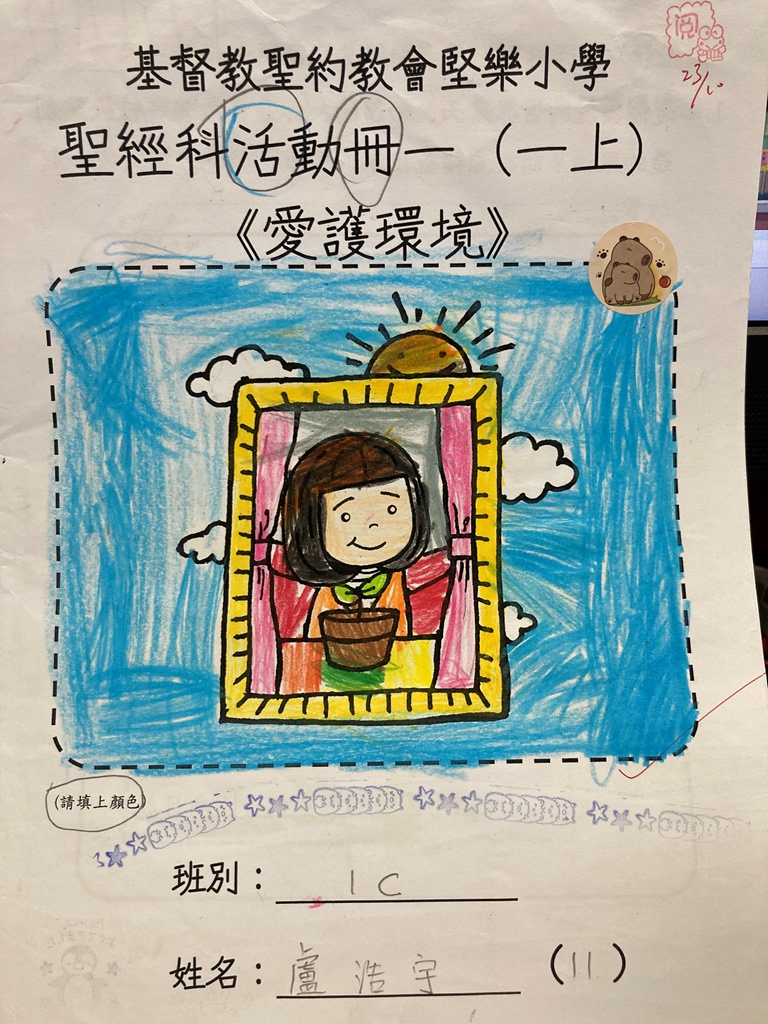 閱
23/10
基督教聖約教會堅樂小學
聖經科活動冊一（一上）
《愛護環境》
(請填上顏色)
班別： 1C
姓名： 盧浩宇 (11)